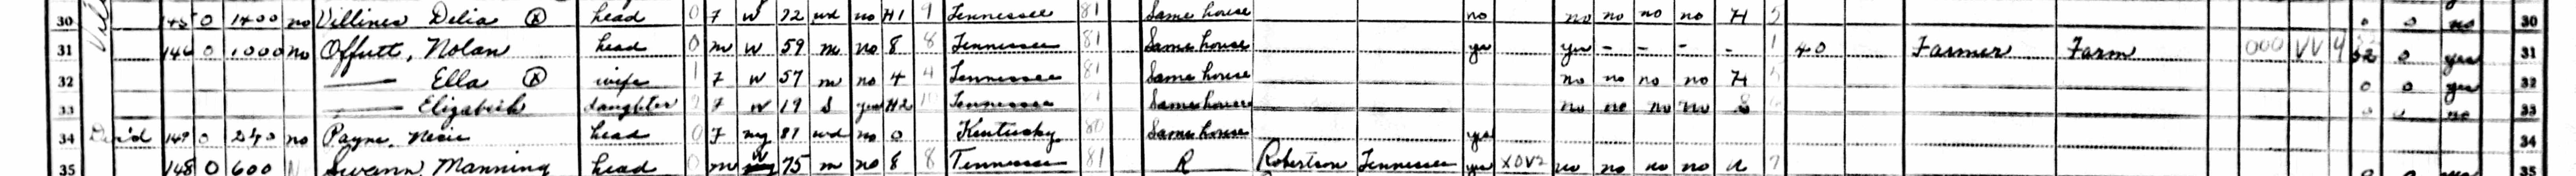 30 145 0 1400 no Villines Delia Ⓧ head 0 F W 72 wd no H1 9 Tennessee 81 Same house no no no no no H 5 0 0 no 30
31 146 0 1000 no Offutt, Nolan head 0 m W 59 m no 8 8 Tennessee 81 Same house yes yes - - - - 1 40 Farmer Farm 000 VV 9 52 0 yes 31
32 — Ella Ⓧ wife 1 F W 57 m no 4 4 Tennessee 81 Same house no no no no H 5 0 0 yes 32
33 — Elizabeth daughter 2 F W 19 S yes H2 Tennessee Same house no no no no S 0 0 no 33
34 149 0 240 no Payne, head 0 F ng 81 wd no 0 Kentucky 80 Same house yes 34
35 148 0 600 Swann, Manning head 0 m W 75 m no 8 8 Tennessee 81 R Robertson Tennessee yes X0V2 no no no no U 7 0 0 yes 35